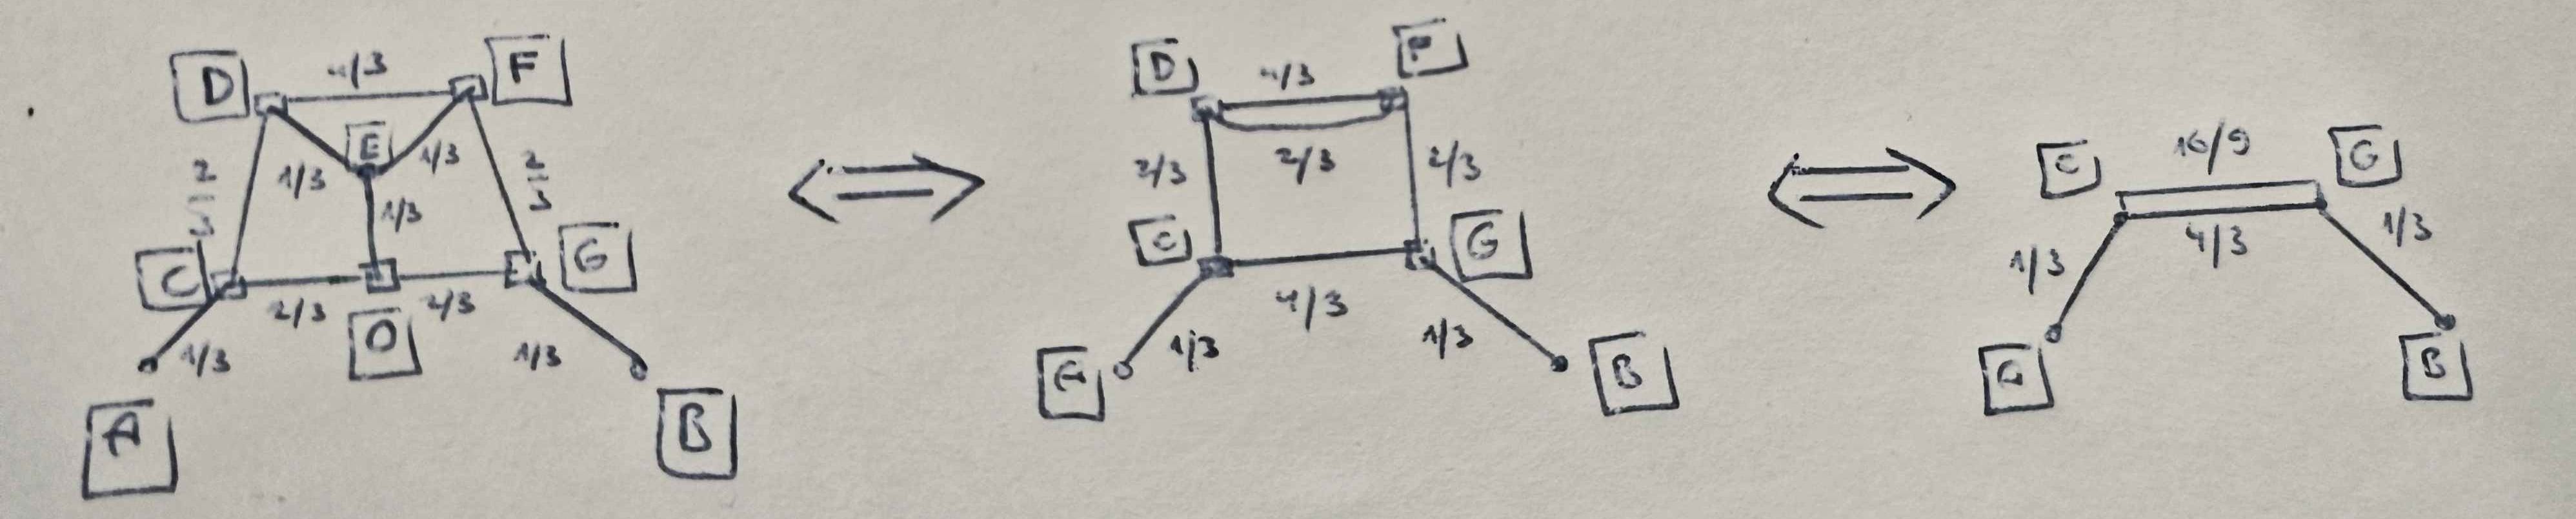 D 4/3 F
E
2/3 1/3 1/3 2/3
1/3
C G
2/3 2/3
O
1/3 1/3
A B
D 4/3 F
2/3 2/3 2/3
C G
4/3
1/3 1/3
A B
C 16/9 G
4/3
1/3 1/3
A B